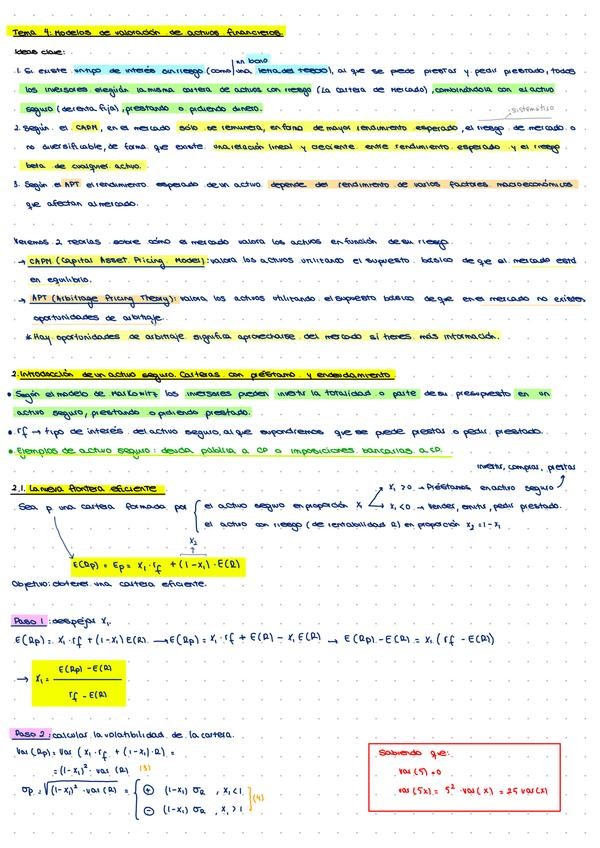 Tema 4: Modelos de valoración de activos financieros.
Ideas clave:
un bono
1. Si existe un tipo de interés sin riesgo (como una letra del tesoro), al que se puede prestar y pedir prestado, todos
los inversores elegirán la misma cartera de activos con riesgo (La cartera de mercado), combinándola con el activo
seguro (de renta fija), prestando o pidiendo dinero.
sistemático
2. Según el CAPM, en el mercado sólo se remunera, en forma de mayor rendimiento esperado, el riesgo de mercado o
no diversificable, de forma que existe una relación lineal y creciente entre rendimiento esperado y el riesgo
beta de cualquier activo.
3. Según el APT el rendimiento esperado de un activo depende del rendimiento de varios factores macroeconómicos
que afectan al mercado.
Veremos 2 teorías sobre cómo el mercado valora los activos en función de su riesgo.
→ CAPM (Capital Asset Pricing Model): valora los activos utilizando el supuesto básico de que el mercado está
en equilibrio.
→ APT (Arbitrage Pricing Theory): valora los activos utilizando el supuesto básico de que en el mercado no existen
oportunidades de arbitraje.
* Hay oportunidades de arbitraje significa aprovecharse del mercado si tienes más información.
2. Introducción de un activo seguro. Carteras con préstamo y endeudamiento
• Según el modelo de Markowitz los inversores pueden invertir la totalidad o parte de su presupuesto en un
activo seguro, prestando o pidiendo prestado.
• rf → tipo de interés del activo seguro, al que supondremos que se puede prestar o pedir prestado.
• Ejemplos de activo seguro: deuda pública a CP o imposiciones bancarias a CP.
invertir, comprar, prestar
2.1. La nueva frontera eficiente
x₁ > 0 → Préstamos en activo seguro
Sea p una cartera formada por { el activo seguro en proporción x₁
x₁ < 0 → Vender, emitir, pedir prestado.
el activo con riesgo (de rentabilidad R) en proporción x₂ = 1 - x₁
x₂
E(Rp) = Ep = x₁ · rf + (1 - x₁) · E(R)
Objetivo: obtener una cartera eficiente.
Paso 1: despejar x₁.
E(Rp) = x₁ · rf + (1 - x₁) E(R) → E(Rp) = x₁ · rf + E(R) - x₁ E(R) → E(Rp) - E(R) = x₁ (rf - E(R))
→ x₁ = E(Rp) - E(R) / rf - E(R)
Paso 2: calcular la volatilidad de la cartera.
Var (Rp) = Var (x₁ · rf + (1 - x₁) · R) =
= (1 - x₁)² · Var (R) (3)
σp = √(1 - x₁)² · Var (R) = { ⊕ (1 - x₁) σR , x₁ < 1
⊖ (1 - x₁) σR , x₁ > 1 } (4)
Sabiendo que:
Var (5) = 0
Var (5x) = 5² · Var (x) = 25 Var(x)